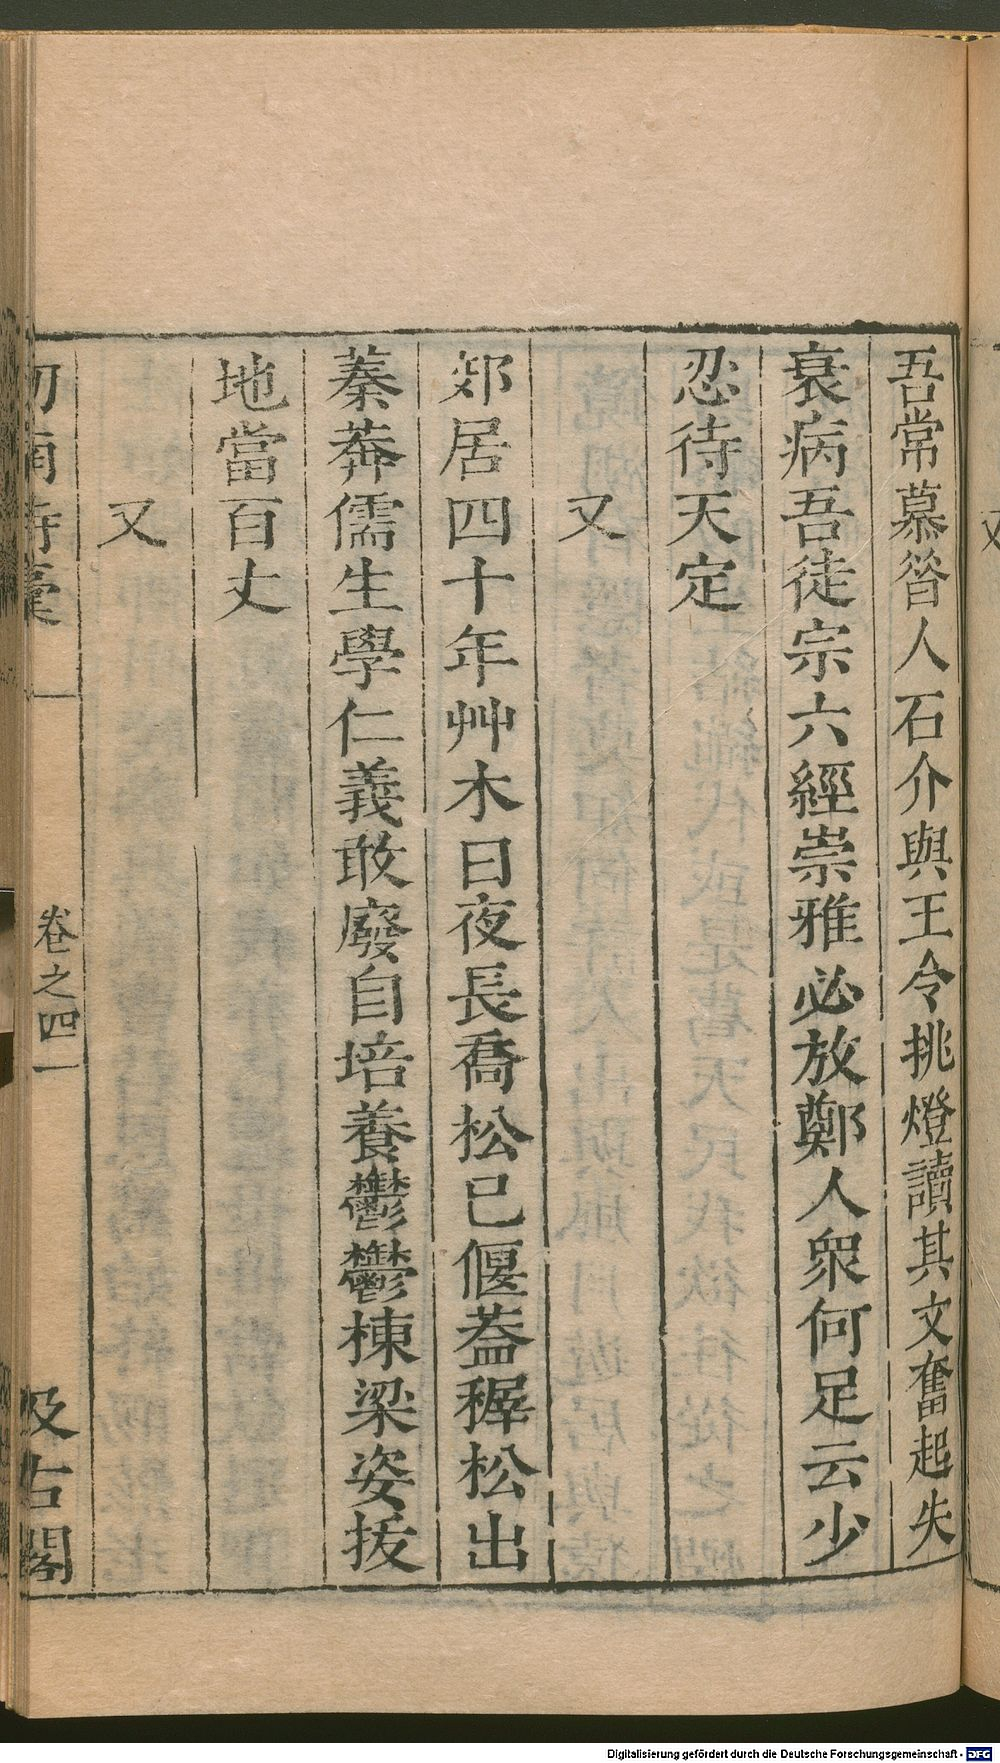 吾常慕晉人石介與王令挑燈讀其文奮起失
衰病吾徒宗六經崇雅必放鄭人衆何足云少
忍待天定
又
郊居四十年艸木日夜長喬松已偃蓋稺松出
蓁莽儒生學仁義敢廢自培養鬱鬱棟梁姿拔
地當百丈
又
劒南詩稾
卷之四一
汲古閣
又
Digitalisierung gefördert durch die Deutsche Forschungsgemeinschaft - DFG